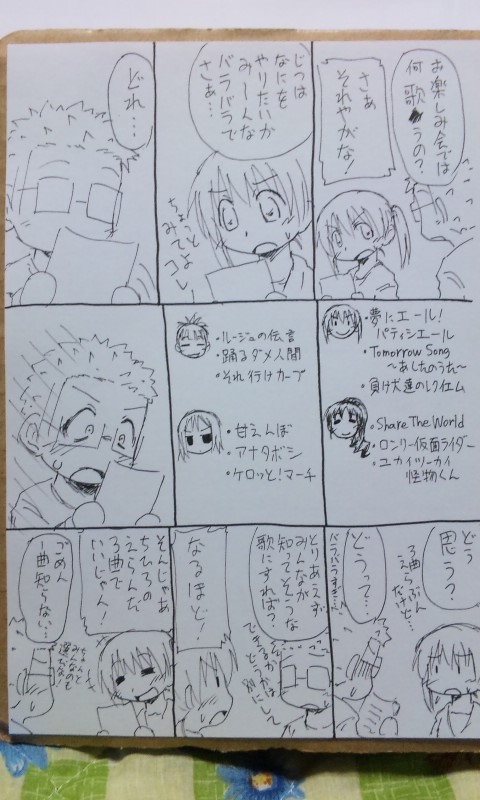 お楽しみ会では
何歌うの？
さぁ
それやがな！
じつは
なにを
やりたいか
み～んな
バラバラで
さぁ…
ちょっと
みてよ
コレ
どれ…
・夢にエール！
パティシエール
・Tomorrow Song
～あしたのうた～
・負け犬達のレクイエム
・Share The World
・ロンリー仮面ライダー
・ユカイツーカイ
怪物くん
・ルージュの伝言
・踊るダメ人間
・それ行けカープ
・甘えんぼ
・アナタボシ
・ケロッと！マーチ
どう
思う？
3曲えらぶん
だけど…
どうって…
バラバラすぎ…
とりあえず
みんなが
知ってそうな
歌にすれば？
できるかは
どうか別にして
なるほど！
そんじゃあ
ちひろの
えらんだ
3曲で
いいじゃん！
ちゃんと
みんなのも
選んだな
ごめん
1曲知らない…